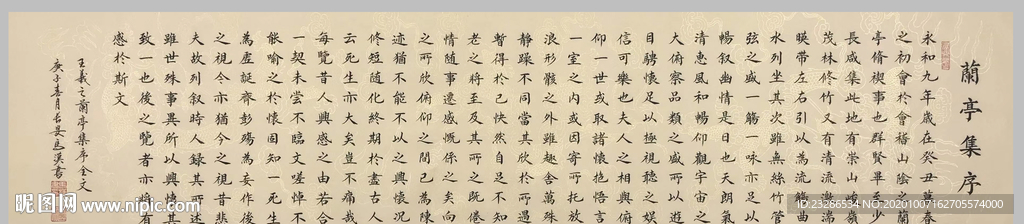 蘭亭集序
永和九年歲在癸丑暮春
之初會於會稽山陰之蘭
亭脩禊事也群賢畢至少
長咸集此地有崇山峻嶺
茂林修竹又有清流激湍
暎帶左右引以為流觴曲
水列坐其次雖無絲竹管
弦之盛一觴一詠亦足以
暢叙幽情是日也天朗氣
清惠風和暢仰觀宇宙之
大俯察品類之盛所以遊
目騁懷足以極視聽之娛
信可樂也夫人之相與俯
仰一世或取諸懷抱悟言
一室之內或因寄所托放
浪形骸之外雖趣舍萬殊
靜躁不同當其欣於所遇
暫得於己快然自足不知
老之將至及其所之既倦
情隨事遷感慨係之矣向
之所欣俯仰之間已為陳
迹猶不能不以之興懷況
修短隨化終期於盡古人
云死生亦大矣豈不痛哉
每覽昔人興感之由若合
一契未嘗不臨文嗟悼不
能喻之於懷固知一死生
為虛誕齊彭殤為妄作後
之視今亦猶今之視昔悲
夫故列叙時人錄其所述
雖世殊事異所以興懷其
致一也後之覽者亦將有
感於斯文
王羲之蘭亭集序全文
庚子春月 書
昵图网
www.nipic.com
ID:23286534 NO:20201007162705574000